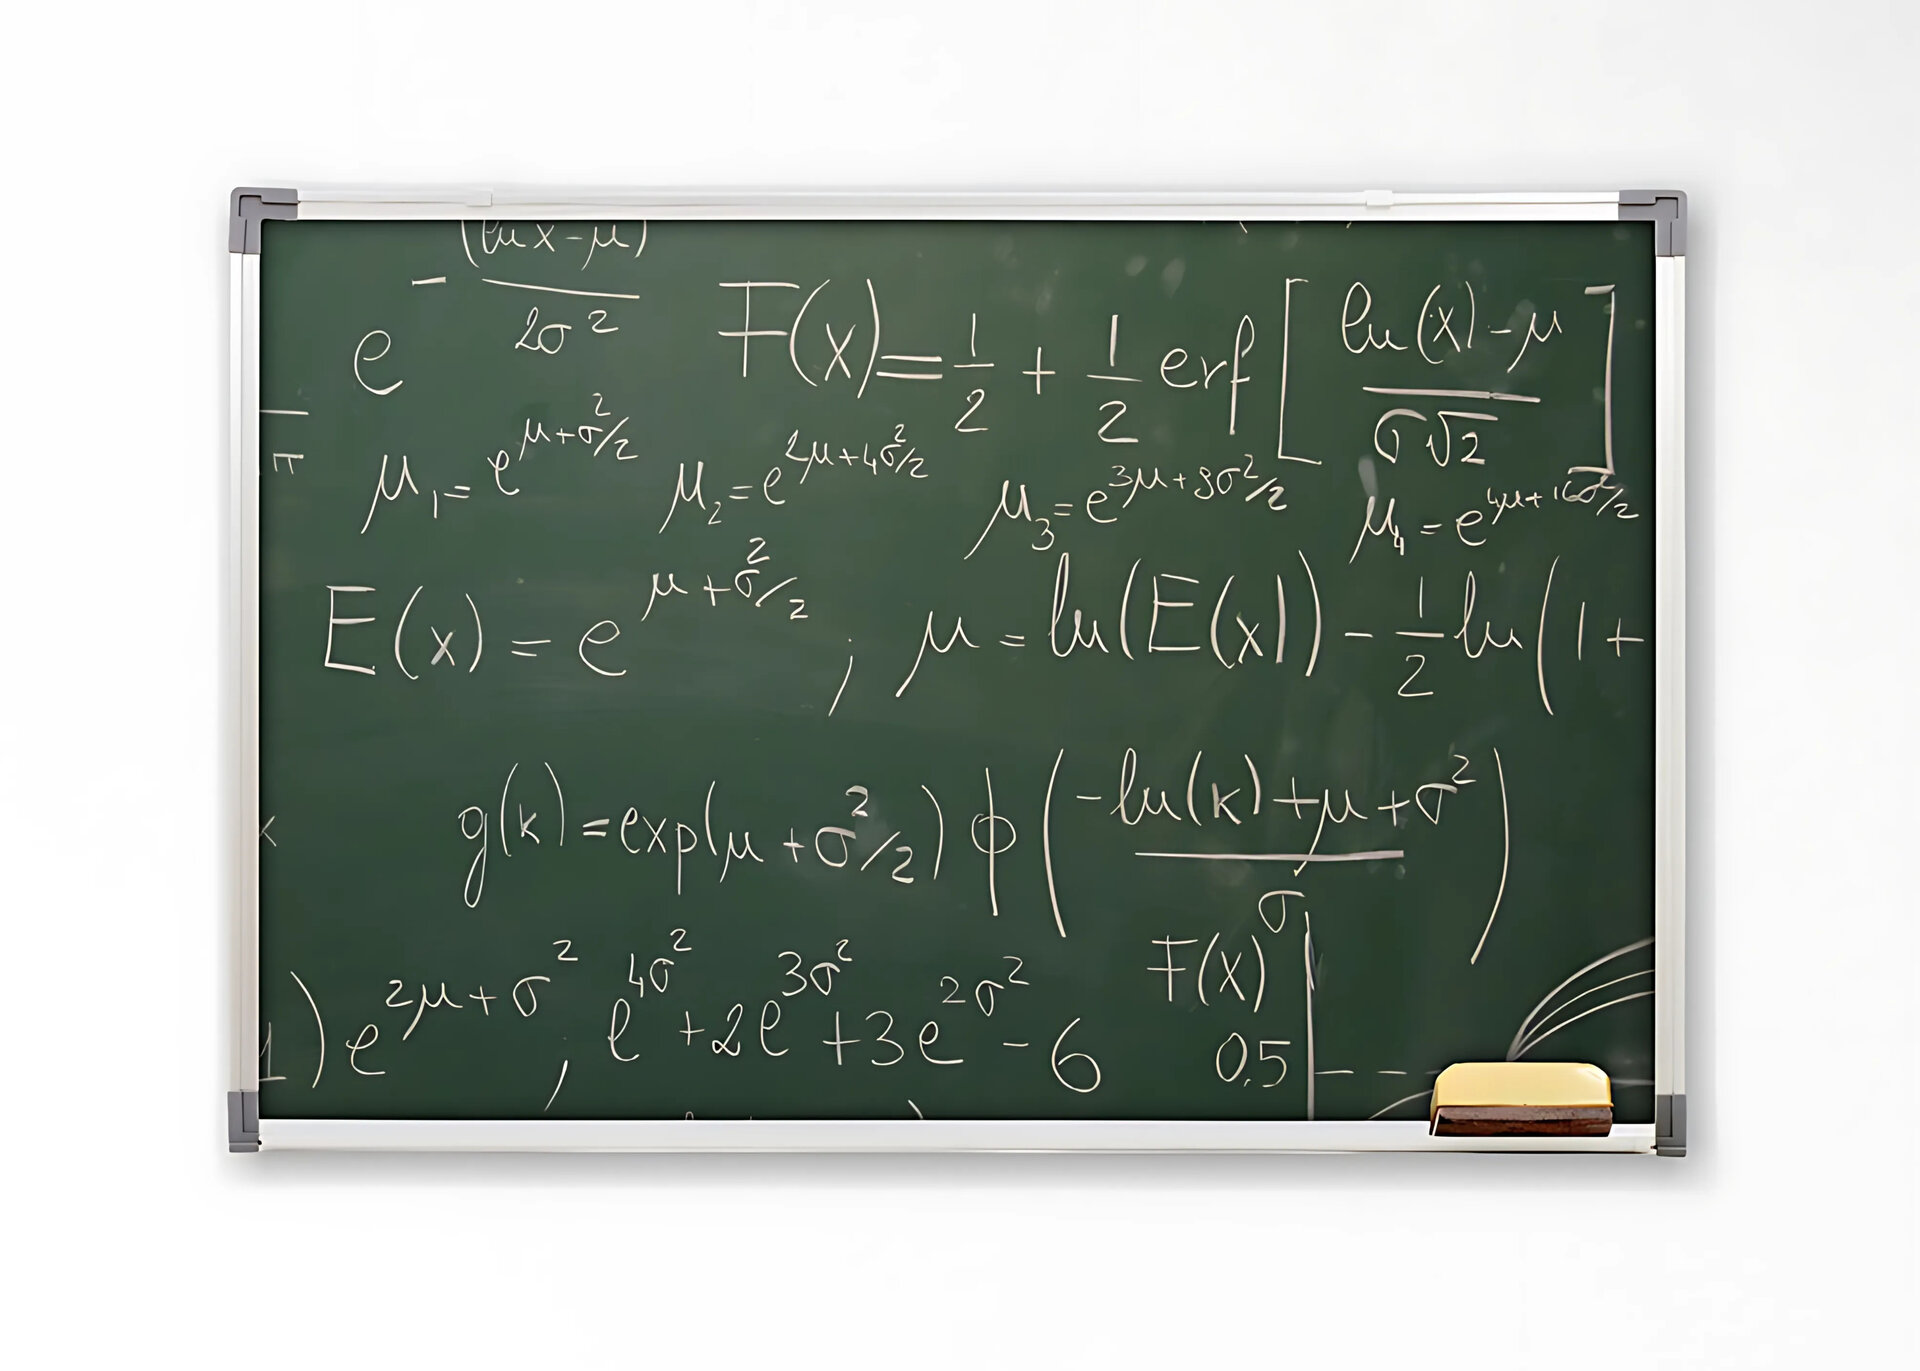 e^{-\frac{(ln x - μ)}{2σ^2}} F(x) = \frac{1}{2} + \frac{1}{2} erf [\frac{ln(x) - μ}{σ√2}]
π μ_1 = e^{μ+σ^2/2} μ_2 = e^{2μ+4σ^2/2} μ_3 = e^{3μ+9σ^2/2} μ_4 = e^{4μ+16σ^2/2}
E(x) = e^{μ+σ^2/2} ; μ = ln(E(x)) - \frac{1}{2} ln(1 +
g(k) = exp(μ + σ^2/2) ϕ (\frac{-ln(k) + μ + σ^2}{σ})
1) e^{2μ+σ^2} , e^{4σ^2} + 2e^{3σ^2} + 3e^{2σ^2} - 6
F(x)
0.5